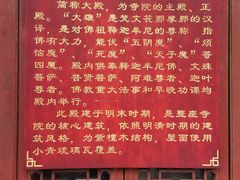 简称大殿，为寺院的主殿、正
殿。“大雄”是梵文菩那摩诃的汉
译，是对佛祖释迦牟尼的尊称。指
佛有大力，能伏“五阴魔”、“烦
恼魔”、“死魔”、“天子魔”等
四魔。殿内供奉释迦牟尼佛、文殊
菩萨、普贤菩萨、阿难尊者、迦叶
尊者。佛教重大法事和早晚功课均
殿内举行。
此殿建于明末时期，是整座寺
院的核心建筑，依照明清时期的建
筑风格，为紫檀木结构，屋面使用
小青琉璃瓦覆盖。